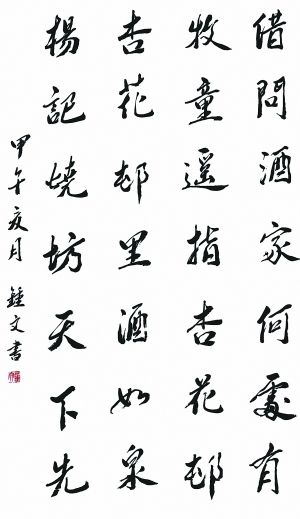 借問酒家何處有
牧童遥指杏花邨
杏花邨里酒如泉
楊記燒坊天下先
甲午夏月 鍾文書